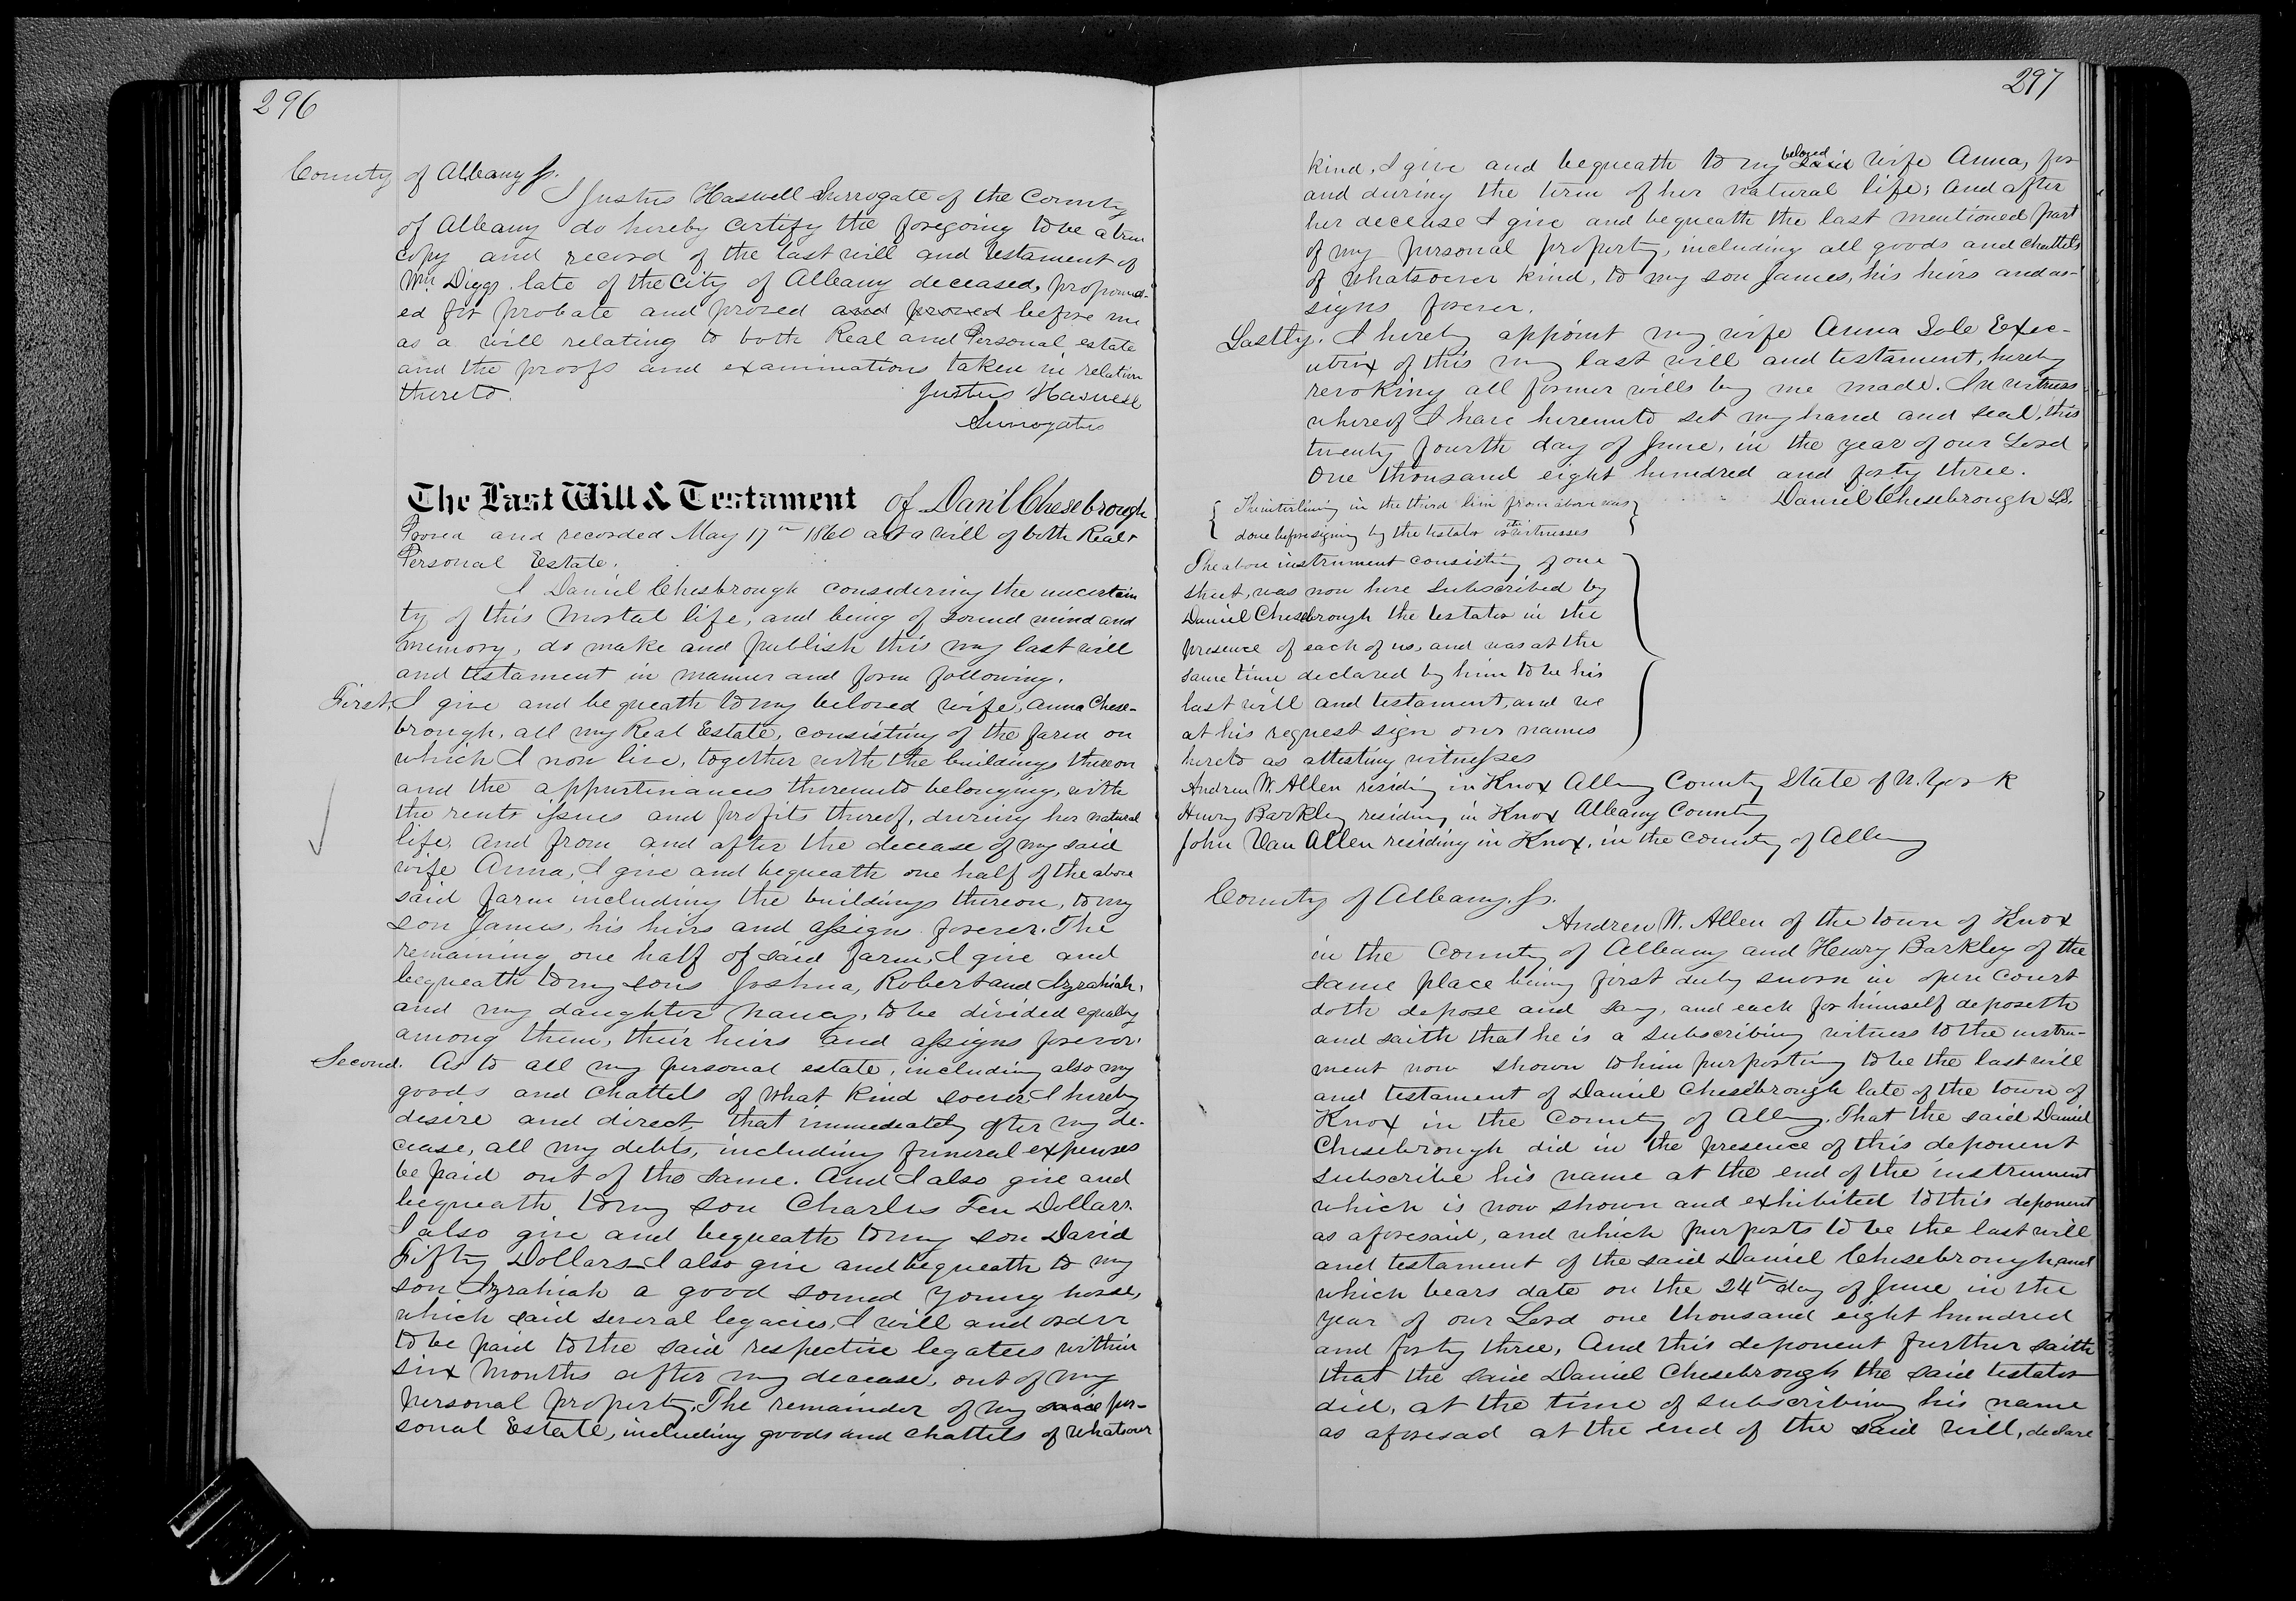 296
County of Albany ss.
I Justus Haswell Surrogate of the County
of Albany do hereby certify the foregoing to be a true
copy and record of the last will and testament of
Wm Diggs late of the City of Albany deceased, propound-
ed for probate and proved and proved before me
as a will relating to both Real and Personal estate
and the proofs and examinations taken in relation
thereto. Justus Haswell
Surrogate
The Last Will & Testament of Dan'l Chesebrough
Proved and recorded May 17th 1860 as a will of both Real &
Personal Estate.
I Daniel Chesbrough considering the uncertain
ty of this mortal life, and being of sound mind and
memory, do make and publish this my last will
and testament in manner and form following.
First, I give and bequeath to my beloved wife, Anna Chese-
brough, all my Real Estate, consisting of the farm on
which I now live, together with the buildings thereon
and the appurtinances thereunto belonging, with
the rents issues and profits thereof, during her natural
life, and from and after the decease of my said
wife Anna, I give and bequeath one half of the above
said farm including the buildings thereon, to my
son James, his heirs and assigns forever. The
remaining one half of said farm, I give and
bequeath to my sons Joshua, Robert and Azrahiah,
and my daughter Nancy, to be divided equally
among them, their heirs and assigns forever.
Second. As to all my personal estate, including also my
goods and chattels of what kind soever I hereby
desire and direct, that immediately after my de-
cease, all my debts, including funeral expenses
be paid out of the same. And I also give and
bequeath to my son Charles Ten Dollars.
I also give and bequeath to my son David
Fifty Dollars I also give and bequeath to my
son Azrahiah a good sound young horse,
which said several legacies, I will and order
to be paid to the said respective legatees within
six months after my decease, out of my
personal property. The remainder of my said per-
sonal Estate, including goods and chattels of whatsoever
297
kind, I give and bequeath to my beloved said wife Anna, for
and during the term of her natural life; and after
her decease I give and bequeath the last mentioned part
of my personal property, including all goods and chattels
of whatsoever kind, to my son James, his heirs and as-
signs forever.
Lastly. I hereby appoint my wife Anna Sole Exec-
utrix of this my last will and testament, hereby
revoking all former wills by me made. In witness
whereof I have hereunto set my hand and seal, this
twenty fourth day of June, in the year of our Lord
One thousand eight hundred and forty three.
Daniel Chesebrough LS.
The interlining in the third line from above was
done before signing by the testator & the witnesses
The above instrument consisting of one
sheet, was now here subscribed by
Daniel Chesebrough the testator in the
presence of each of us, and was at the
same time declared by him to be his
last will and testament, and we
at his request sign our names
hereto as attesting witnesses
Andrew W. Allen residing in Knox Albany County State of N. York
Henry Barkley residing in Knox Albany County
John Van Allen residing in Knox, in the county of Albany
County of Albany, ss.
Andrew W. Allen of the town of Knox
in the County of Albany and Henry Barkley of the
same place being first duly sworn in open Court
doth depose and say, and each for himself deposeth
and saith that he is a subscribing witness to the instru-
ment now shown to him purporting to be the last will
and testament of Daniel Chesebrough late of the town of
Knox in the County of Albany. That the said Daniel
Chesebrough did in the presence of this deponent
subscribe his name at the end of the instrument
which is now shown and exhibited to this deponent
as aforesaid, and which purports to be the last will
and testament of the said Daniel Chesebrough and
which bears date on the 24th day of June in the
year of our Lord one thousand eight hundred
and forty three, And this deponent further saith
that the said Daniel Chesebrough the said testator
did, at the time of subscribing his name
as aforesad at the end of the said will, declare